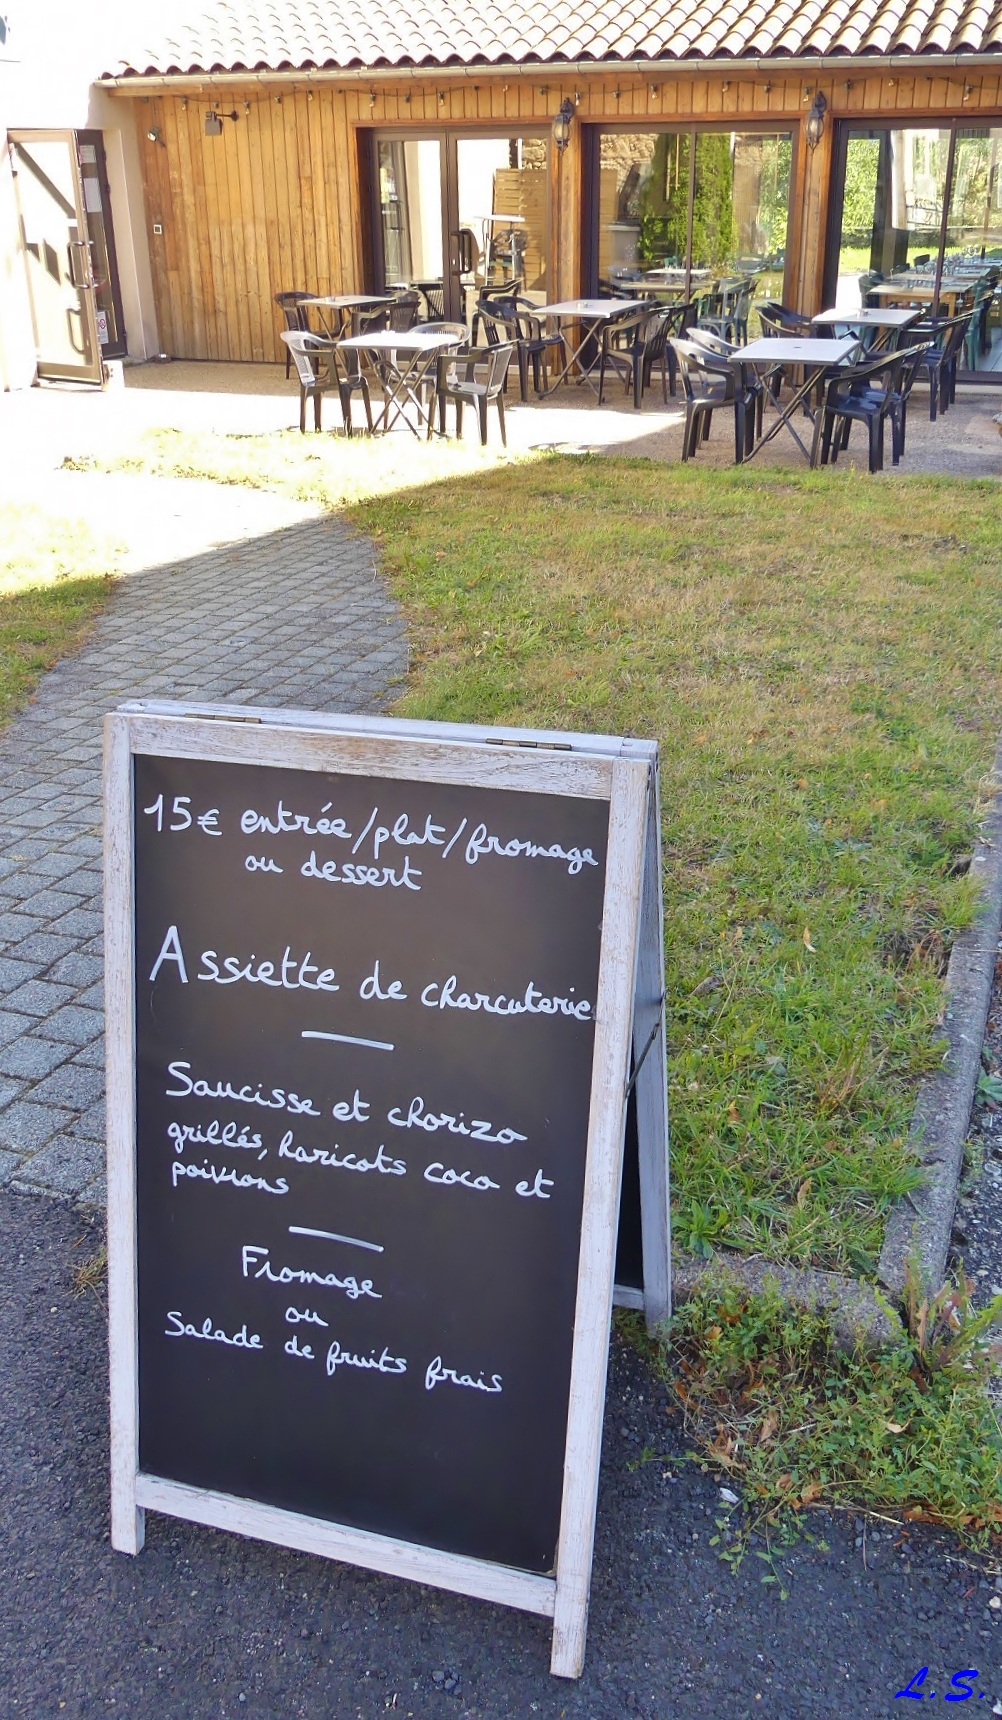 15€ entrée/plat/fromage
ou dessert
Assiette de charcuterie
Saucisse et chorizo
grillés, haricots coco et
poivrons
Fromage
ou
Salade de fruits frais
L.S.